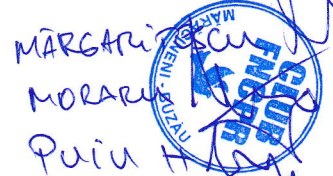 MĂRGĂRITESCU
MORARU
PUIU H
CLUB
FNCPR
MĂRGĂRITENI BUZĂU